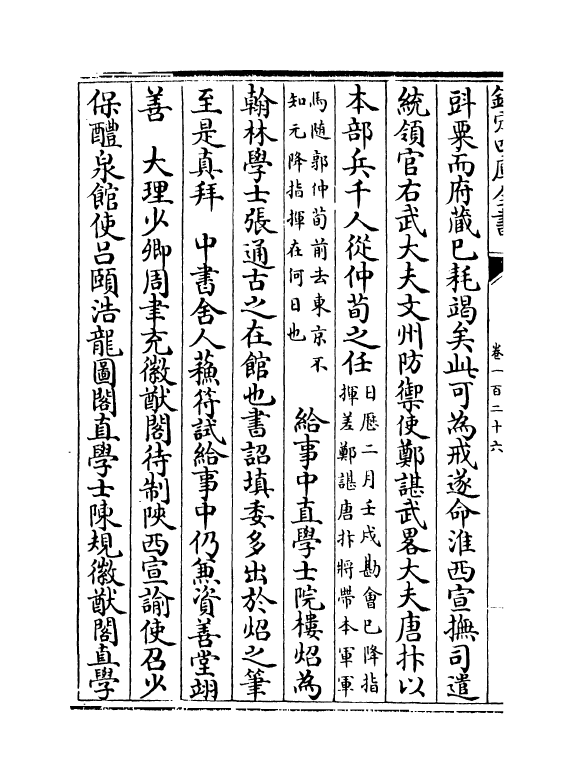 欽定四庫全書
卷一百二十六
㪷粟而府藏已耗竭矣此可為戒遂命淮西宣撫司遣
統領官右武大夫文州防禦使鄭諶武畧大夫唐抃以
本部兵千人從仲荀之任日歴二月壬戌勘會已降指
揮差鄭諶唐抃將帶本軍軍
馬随郭仲荀前去東京不
知元降指揮在何日也 給事中直學士院樓炤為
翰林學士張通古之在館也書詔填委多出於炤之筆
至是真拜 中書舍人蘓符試給事中仍兼資善堂翊
善 大理少卿周聿充徽猷閣待制陜西宣諭使召少
保醴泉館使吕頤浩龍圖閣直學士陳規徽猷閣直學